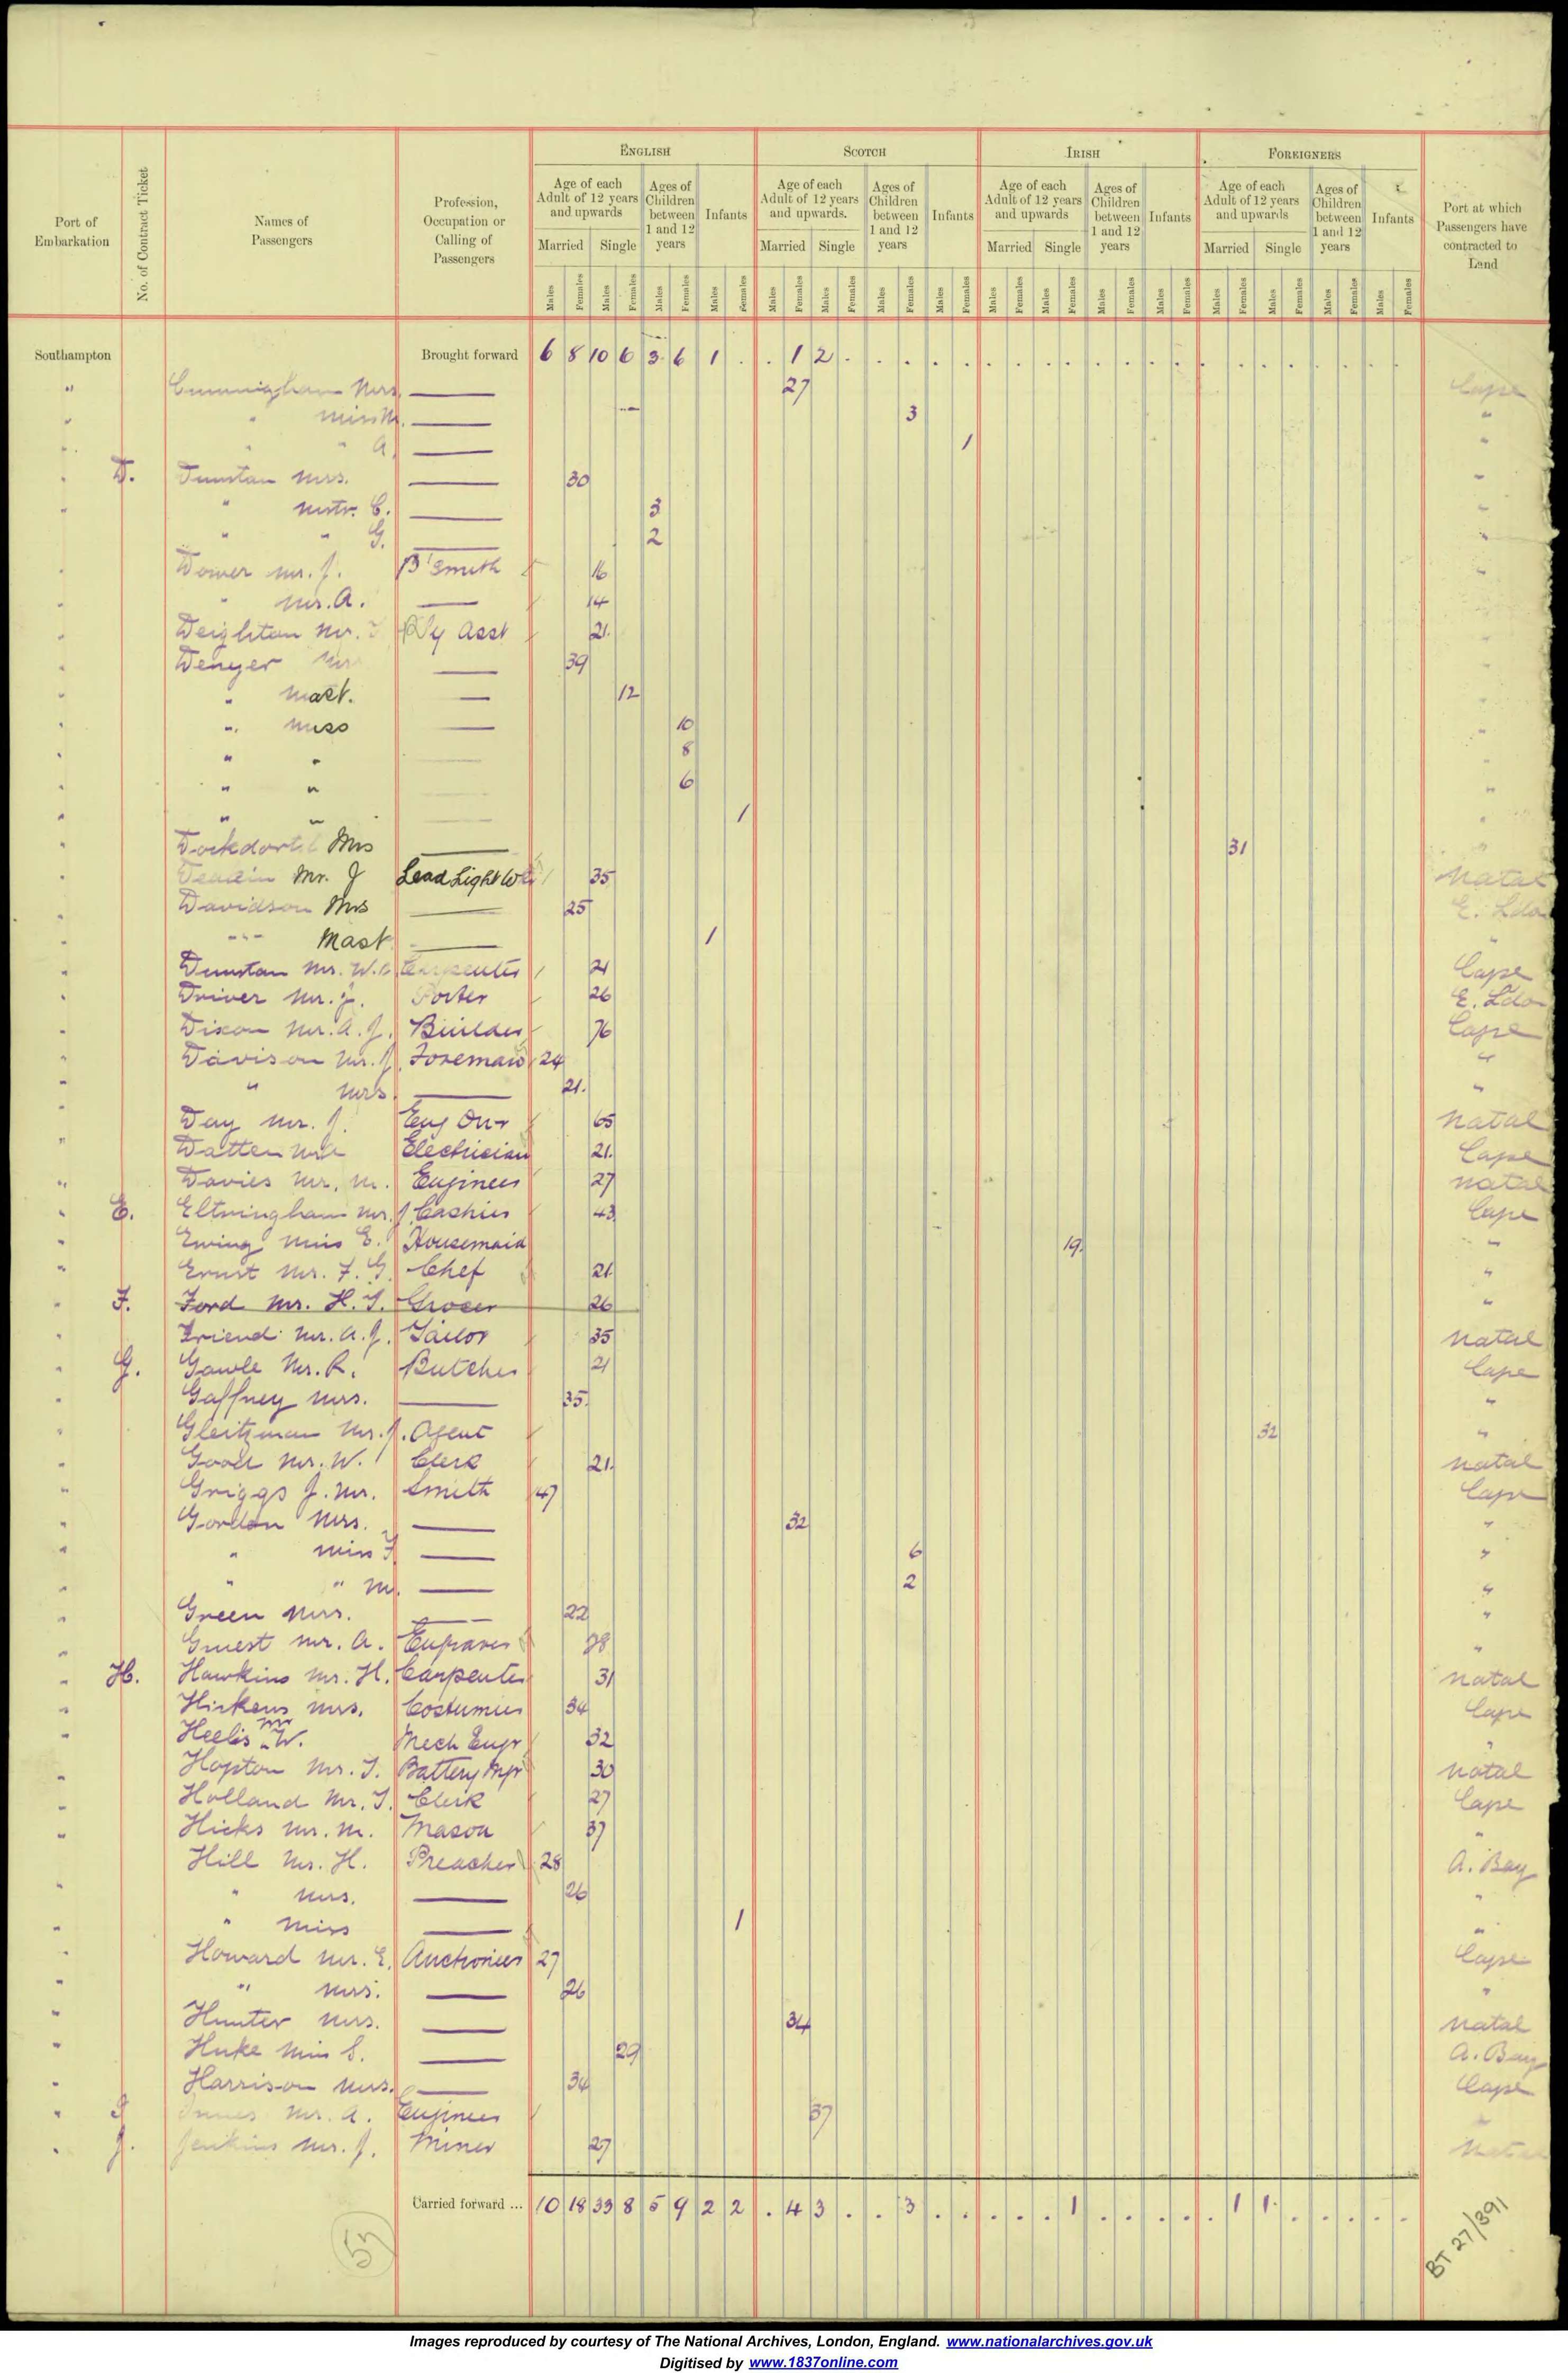 ENGLISH SCOTCH IRISH FOREIGNERS
Port of Embarkation
No. of Contract Ticket
Names of Passengers
Profession, Occupation or Calling of Passengers
Age of each Adult of 12 years and upwards Ages of Children between 1 and 12 years Infants
Age of each Adult of 12 years and upwards. Ages of Children between 1 and 12 years Infants
Age of each Adult of 12 years and upwards Ages of Children between 1 and 12 years Infants
Age of each Adult of 12 years and upwards Ages of Children between 1 and 12 years Infants
Port at which Passengers have contracted to Land
Married Single Married Single Married Single Married Single
Males Females Males Females Males Females Males Females Males Females Males Females Males Females Males Females Males Females Males Females Males Females Males Females Males Females Males Females Males Females Males Females
Southampton Brought forward 6 8 10 6 3 6 1 . . 1 2 . . . . . . . . . . . . . . . . . . . . .
" Cunnigham Mrs. 27 Cape
" " Miss M. 3 "
" " " A. 1 "
" D. Dunstan Mrs. 30 "
" " Mstr. C. 3 "
" " " G. 2 "
" Dower Mr. J. B'Smith 16 "
" " Mr. A. 14 "
" Deighton Mr. Rly Asst 21. "
" Denyer 39 "
" " Mast. 12 "
" " Miss 10 "
" " " 8 "
" " " 6 "
" " " 1 "
" Mrs 31 "
" Mr. J Lead Light 35 Natal
" Davidson Mrs 25 E. Ldn
" " Mast 1 "
" Dunstan Mr. W. Carpenter 21 Cape
" Driver Mr. J. Porter 26 E. Ldn
" Dixon Mr. A. J. Builder 76 Cape
" Davison Mr. J. Foreman 24 "
" " Mrs. 21. "
" Day Mr. J. Eng Drr 65 Natal
" Datten Electrician 21. Cape
" Davies Mr. M. Engineer 27 Natal
" E. Eltringham Mr. J. Cashier 43 Cape
" Ewing Miss E. Housemaid 19. "
" Ernst Mr. F. G. Chef 21 "
" F. Ford Mr. H. J. Grocer 26 "
" Friend Mr. A. J. Tailor 35 Natal
" G. Gawle Mr. R. Butcher 21 Cape
" Gaffney Mrs. 35. "
" Gleitzman Mr. J. Agent 32 "
" Good Mr. W. Clerk 21. Natal
" Griggs J. Mr. Smith 47 Cape
" Gordon Mrs. 32 "
" " Miss 6 "
" " " M. 2 "
" Green Mrs. 22 "
" Guest Mr. A. Engraver 28 "
" H. Hawkins Mr. H. Carpenter 31 Natal
" Hickens Mrs. Costumier 34 Cape
" Heelis Mr W. Mech Engr 32 "
" Hopton Mr. T. Battery Mgr 30 Natal
" Holland Mr. T. Clerk 27 Cape
" Hicks Mr. M. Mason 37 "
Hill Mr. H. Preacher 28 A. Bay
" " Mrs. 26 "
" " Miss 1 "
" Howard Mr. E. Auctioneer 27 Cape
" " Mrs. 26 "
" Hunter Mrs. 34 Natal
" Huke Miss S. 29 A. Bay
" Harrison Mrs. 34 Cape
" I Innes Mr. A. Engineer 37
" J. Jenkins Mr. J. Miner 27 Natal
Carried forward ... 10 18 33 8 5 9 2 2 . 4 3 . . 3 . . . . . 1 . . . . . 1 1 . . . . .
BT 27/391
Images reproduced by courtesy of The National Archives, London, England. www.nationalarchives.gov.uk
Digitised by www.1837online.com